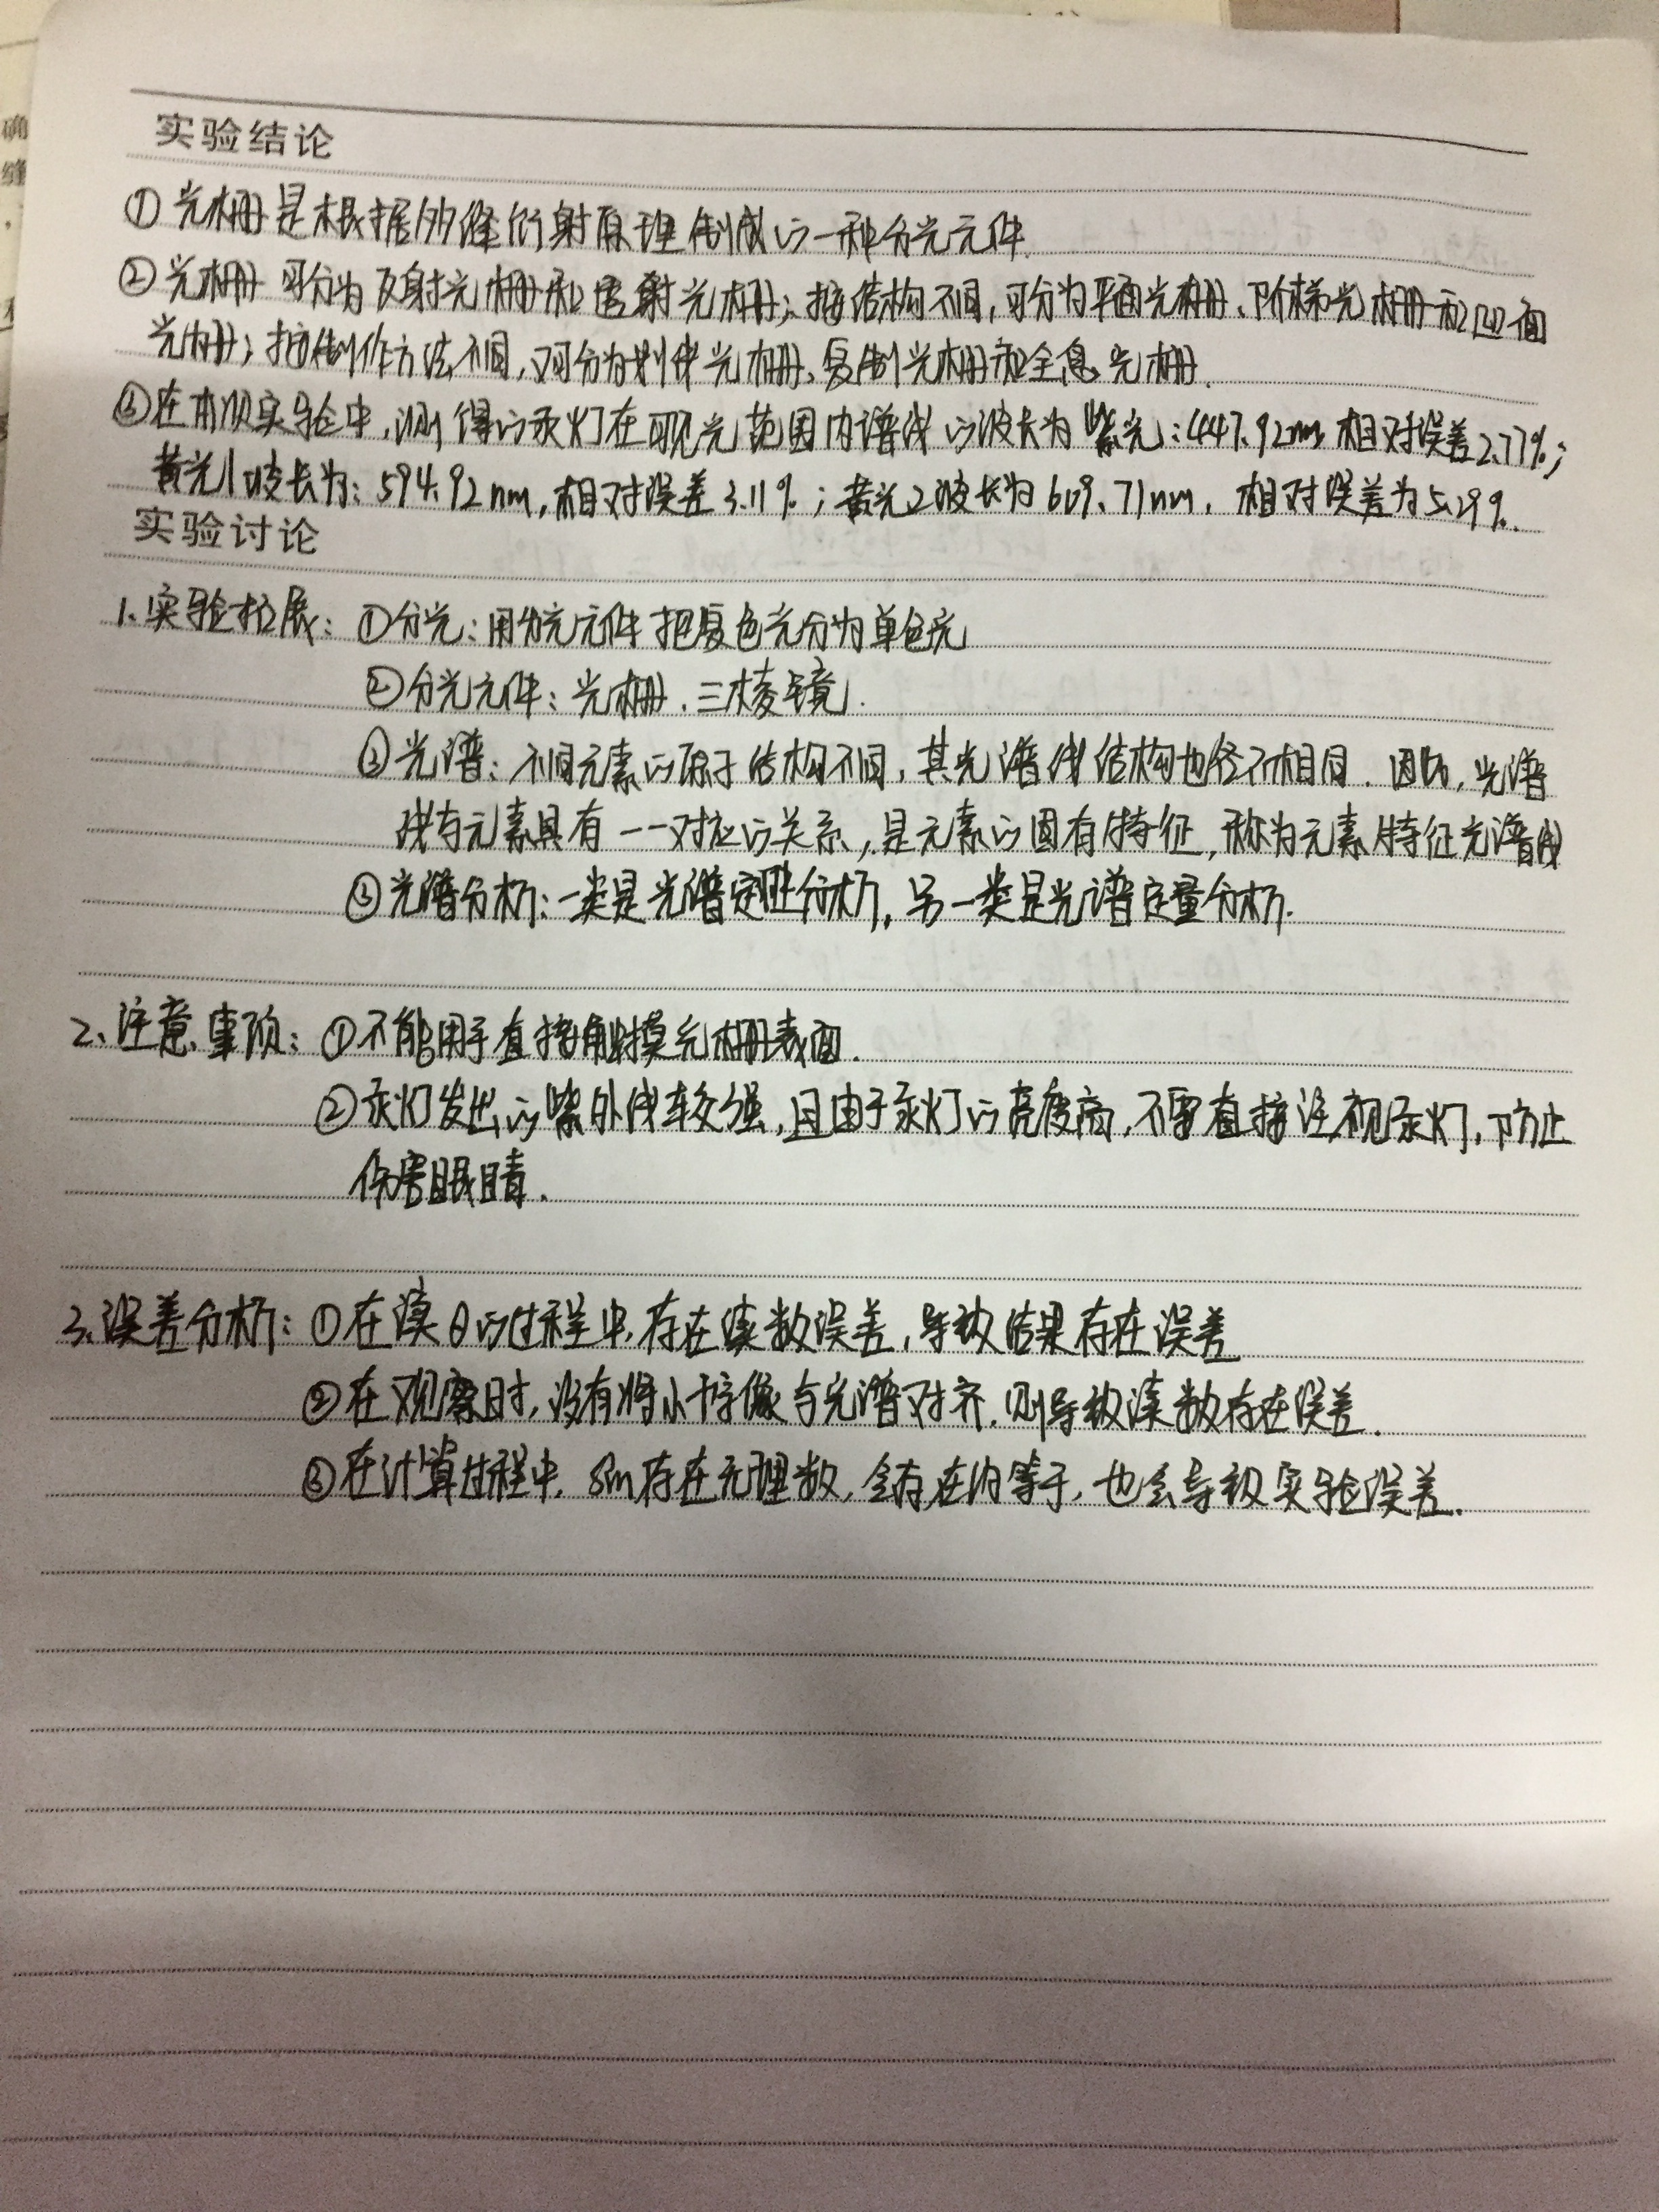 实验结论
①光栅是根据多缝衍射原理制成的一种分光元件.
②光栅可分为反射光栅和透射光栅;按结构不同,可分为平面光栅、阶梯光栅和凹面
光栅;按制作方法不同,又可分为刻线光栅、复制光栅和全息光栅.
③在本次实验中,测得的汞灯在可见光范围内谱线的波长为紫光:447.92nm,相对误差2.77%;
黄光1波长为:594.92nm,相对误差3.11%;黄光2波长为609.71nm,相对误差为5.29%.
实验讨论
1.实验拓展:①分光:用分光元件把复色光分为单色光
②分光元件:光栅.三棱镜.
③光谱:不同元素的原子结构不同,其光谱线结构也各不相同.因此,光谱
线与元素具有一一对应的关系,是元素的固有特征,称为元素特征光谱线
③光谱分析:一类是光谱定性分析,另一类是光谱定量分析.
2、注意事项:①不能用手直接触摸光栅表面.
②汞灯发出的紫外线较强,且由于汞灯的亮度高,不要直接注视汞灯,防止
伤害眼睛.
3.误差分析:①在读θ的过程中,存在读数误差,导致结果存在误差
②在观察时,没有将小十字像与光谱对齐,则导致读数存在误差.
③在计算过程中,sin存在无理数,会存在约等于,也会导致实验误差.
确
缝